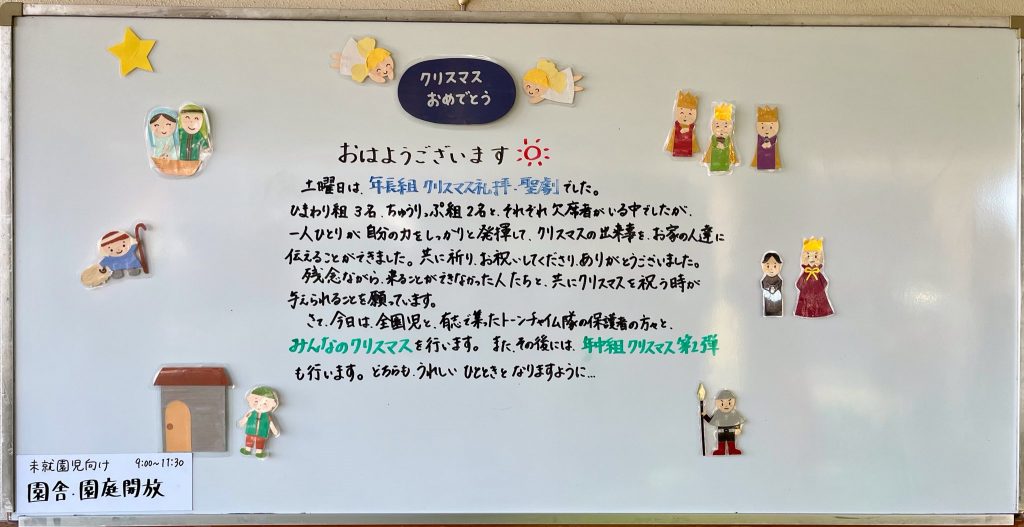 クリスマス
おめでとう
おはようございます
土曜日は、年長組 クリスマス礼拝・聖劇でした。
ひまわり組 3名、ちゅうりっぷ組 2名と、それぞれ欠席者がいる中でしたが、
一人ひとりが自分の力をしっかりと発揮して、クリスマスの出来事を、お家の人達に
伝えることができました。共に祈り、お祝いしてくださり、ありがとうございました。
残念ながら、来ることができなかった人たちと、共にクリスマスを祝う時が
与えられることを願っています。
さて、今日は、全園児と、有志で集ったトーンチャイム隊の保護者の方々と、
みんなのクリスマスを行います。また、その後には、年中組クリスマス第2弾
も行います。どちらも、うれしい ひとときと なりますように…
未就園児向け 9:00~11:30
園舎・園庭開放